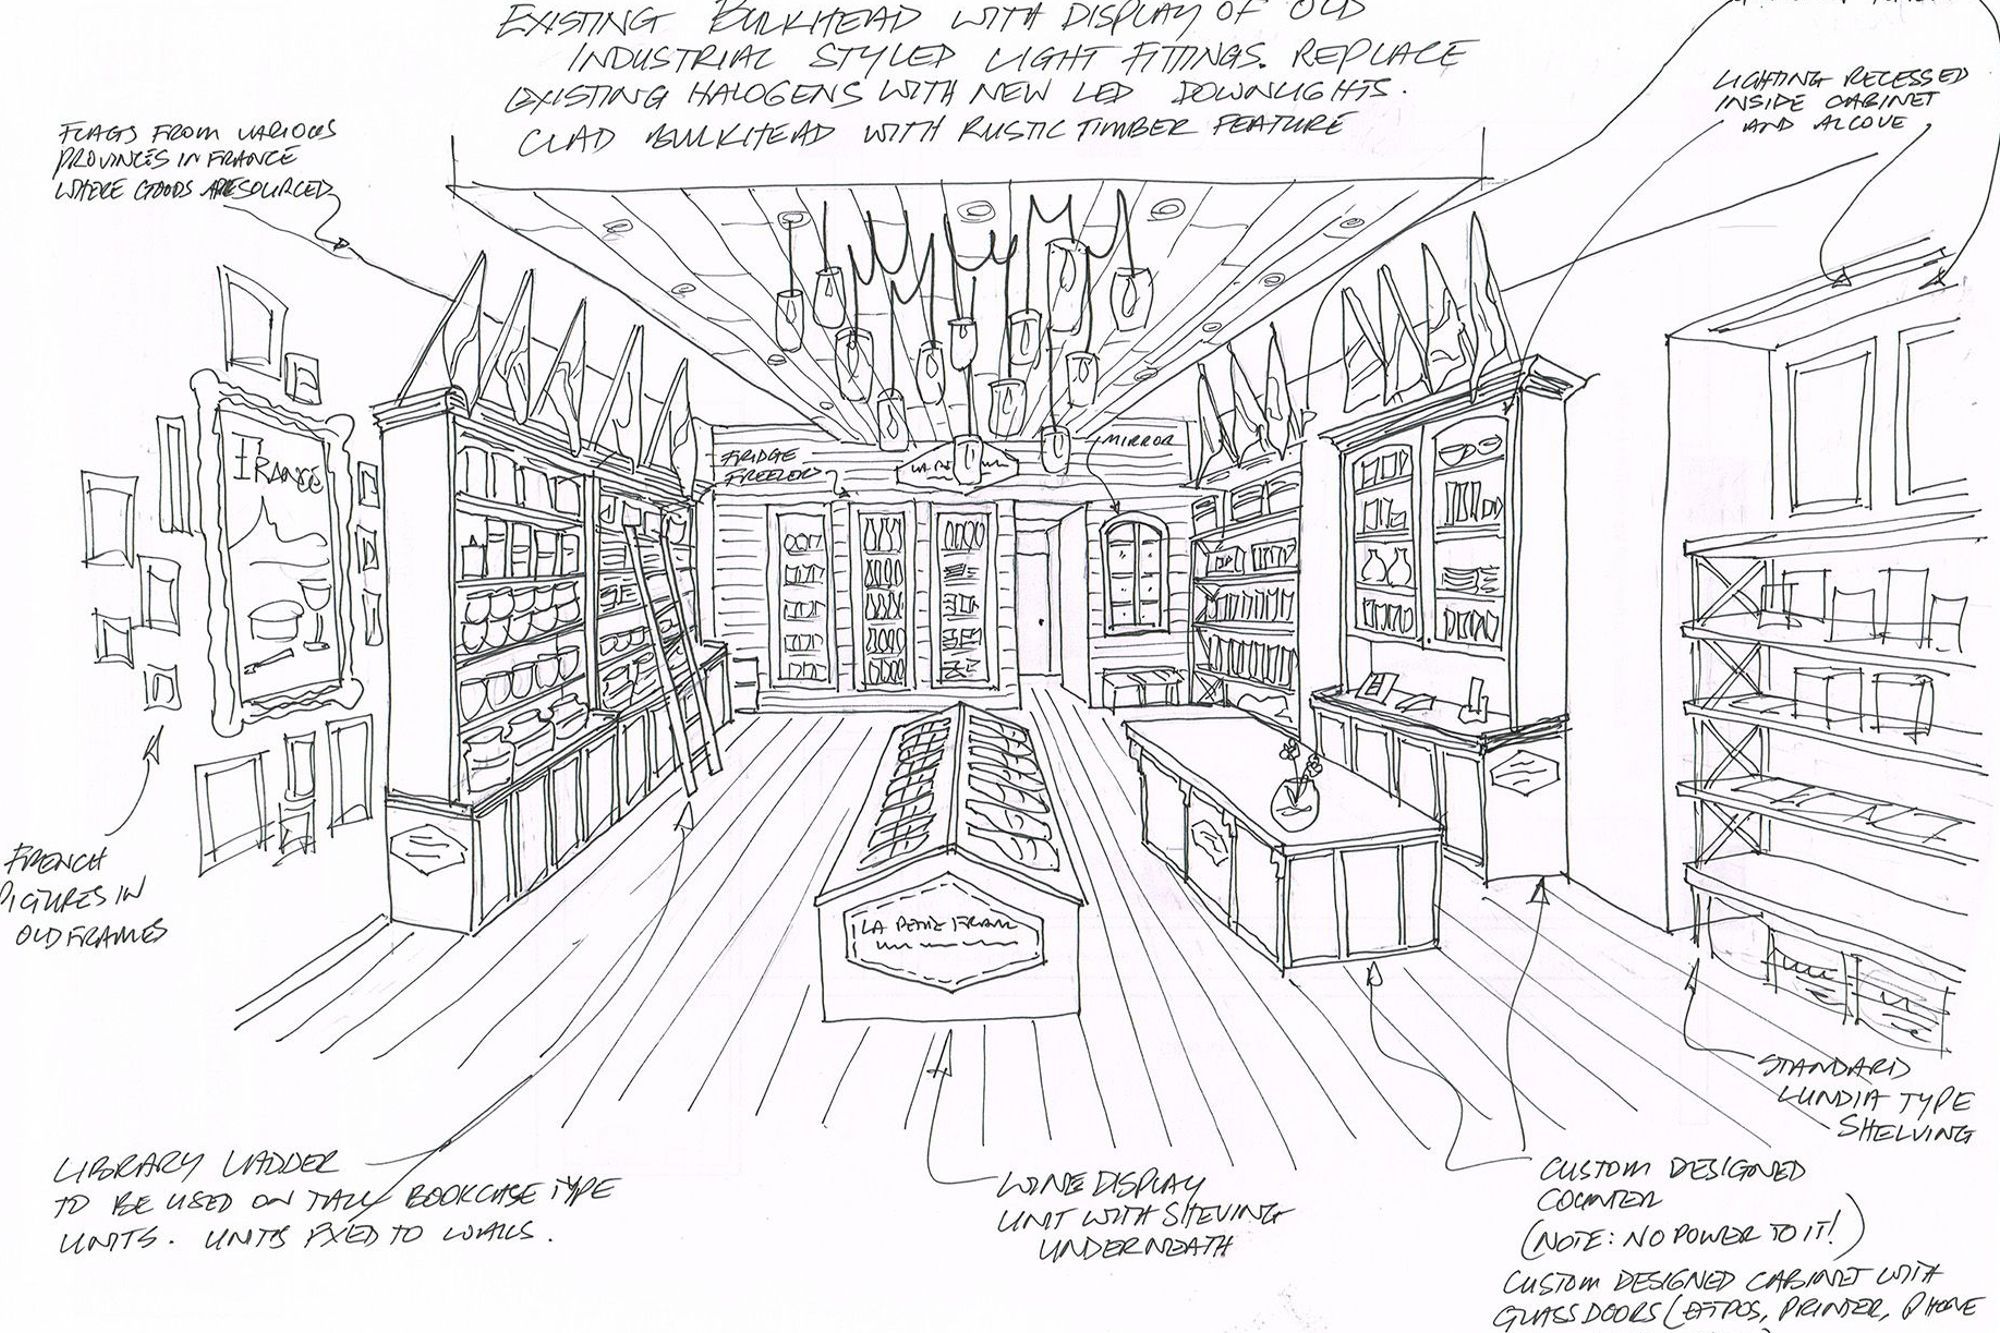 EXISTING BULKHEAD WITH DISPLAY OF OLD
INDUSTRIAL STYLED LIGHT FITTINGS. REPLACE
EXISTING HALOGENS WITH NEW LED DOWNLIGHTS.
CLAD BULKHEAD WITH RUSTIC TIMBER FEATURE
LIGHTING RECESSED
INSIDE CABINET
AND ALCOVE
FLAGS FROM VARIOUS
PROVINCES IN FRANCE
WHERE GOODS ARE SOURCED
FRANCE
FRIDGE
FREEZER
MIRROR
FRENCH
PICTURES IN
OLD FRAMES
LA PETITE FRANC
STANDARD
LUNDIA TYPE
SHELVING
LIBRARY LADDER
TO BE USED ON TALL BOOKCASE TYPE
UNITS. UNITS FIXED TO WALLS.
WINE DISPLAY
UNIT WITH SHEVING
UNDERNEATH
CUSTOM DESIGNED
COUNTER
(NOTE: NO POWER TO IT!)
CUSTOM DESIGNED CABINET WITH
GLASS DOORS (EFTPOS, PRINTER, PHONE